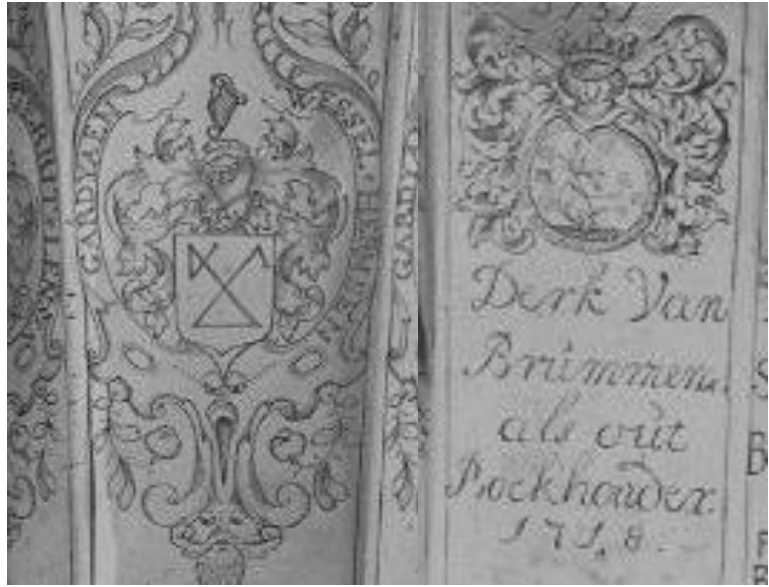 GARDYAEN WESSEL HESDEN
GARDY
1731
Derk Van
Brummen.
als oùt
Boekhouder.
1718.